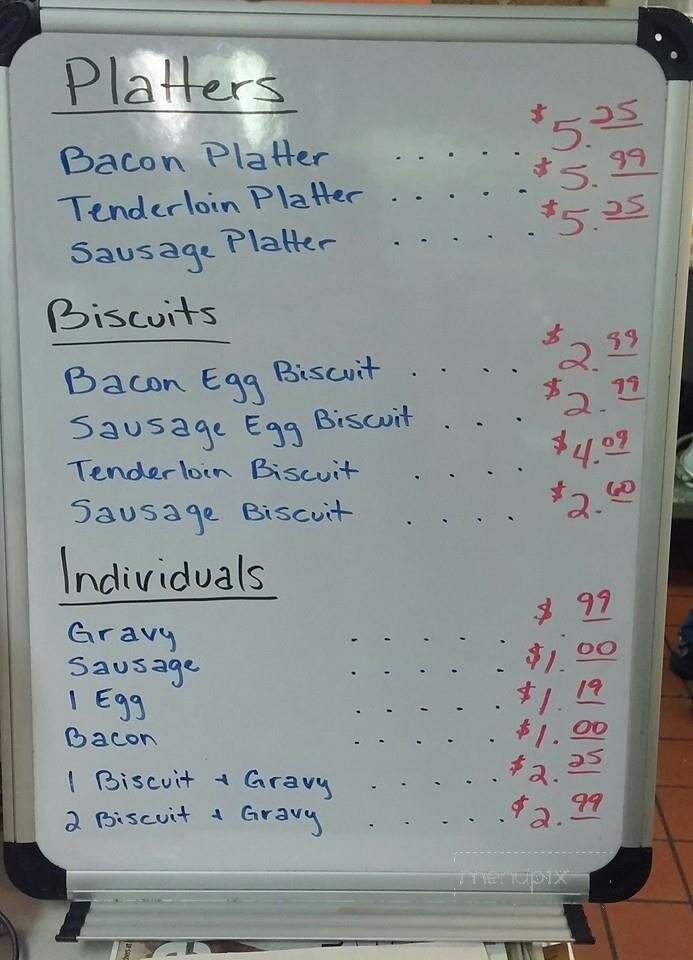 Platters
Bacon Platter ..... $5.25
Tenderloin Platter ..... $5.99
Sausage Platter ..... $5.25
Biscuits
Bacon Egg Biscuit .... $2.99
Sausage Egg Biscuit ... $2.99
Tenderloin Biscuit .... $4.09
Sausage Biscuit .... $2.60
Individuals
Gravy ..... $.99
Sausage ..... $1.00
1 Egg ..... $1.19
Bacon ..... $1.00
1 Biscuit + Gravy ..... $2.25
2 Biscuit + Gravy ..... $2.99
menupix